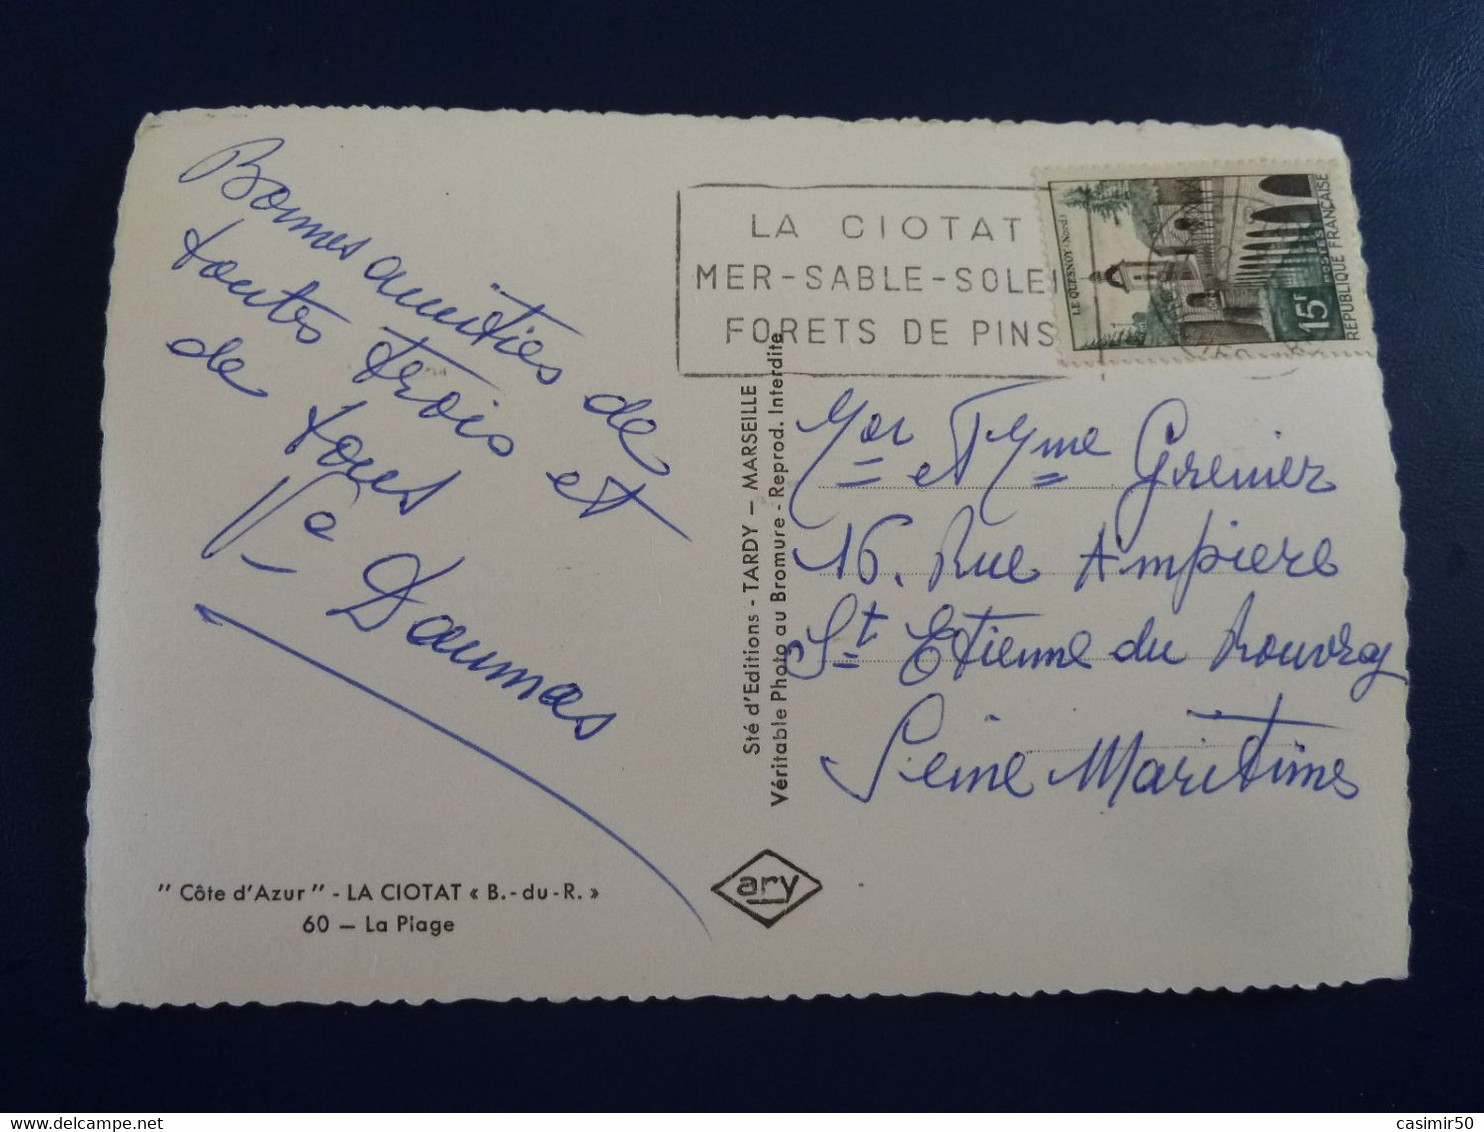 Bonnes amitiés de
toutes trois et
de tous
Vᵉ Daumas
" Côte d'Azur " - LA CIOTAT « B.-du-R. »
60 — La Plage
Sté d'Editions - TARDY — MARSEILLE
Véritable Photo au Bromure - Reprod. Interdite
ary
LA CIOTAT
MER-SABLE-SOLEI
FORETS DE PINS
LE QUESNOY (Nord)
15F
POSTES
REPUBLIQUE FRANÇAISE
Mer et Mme Grenier
16, Rue Ampiere
St Etienne du Rouvray
Seine Maritime
casimir50